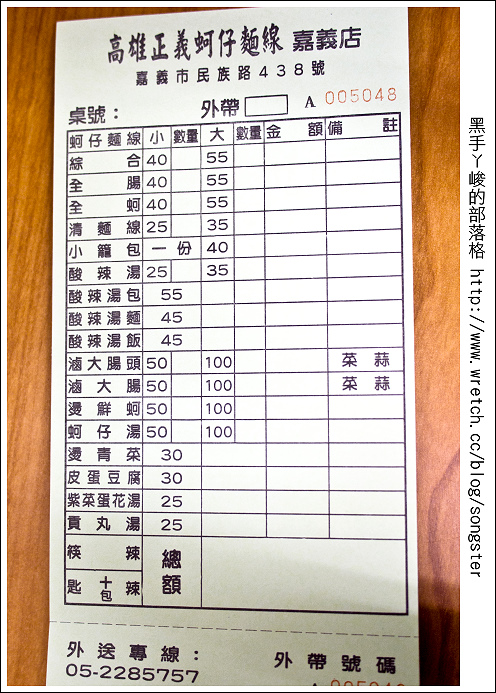 高雄正義蚵仔麵線 嘉義店
嘉義市民族路438號
桌號： 外帶 A 005048
蚵仔麵線 小 數量 大 數量 金額 備註
綜合 40 55
全腸 40 55
全蚵 40 55
清麵線 25 35
小籠包 一份 40
酸辣湯 25 35
酸辣湯包 55
酸辣湯麵 45
酸辣湯飯 45
滷大腸頭 50 100 菜 蒜
滷大腸 50 100 菜 蒜
燙鮮蚵 50 100
蚵仔湯 50 100
燙青菜 30
皮蛋豆腐 30
紫菜蛋花湯 25
貢丸湯 25
筷 辣 總額
匙 十包 辣
外送專線： 外帶號碼
05-2285757 005048
黑手ㄚ峻的部落格 http://www.wretch.cc/blog/songster